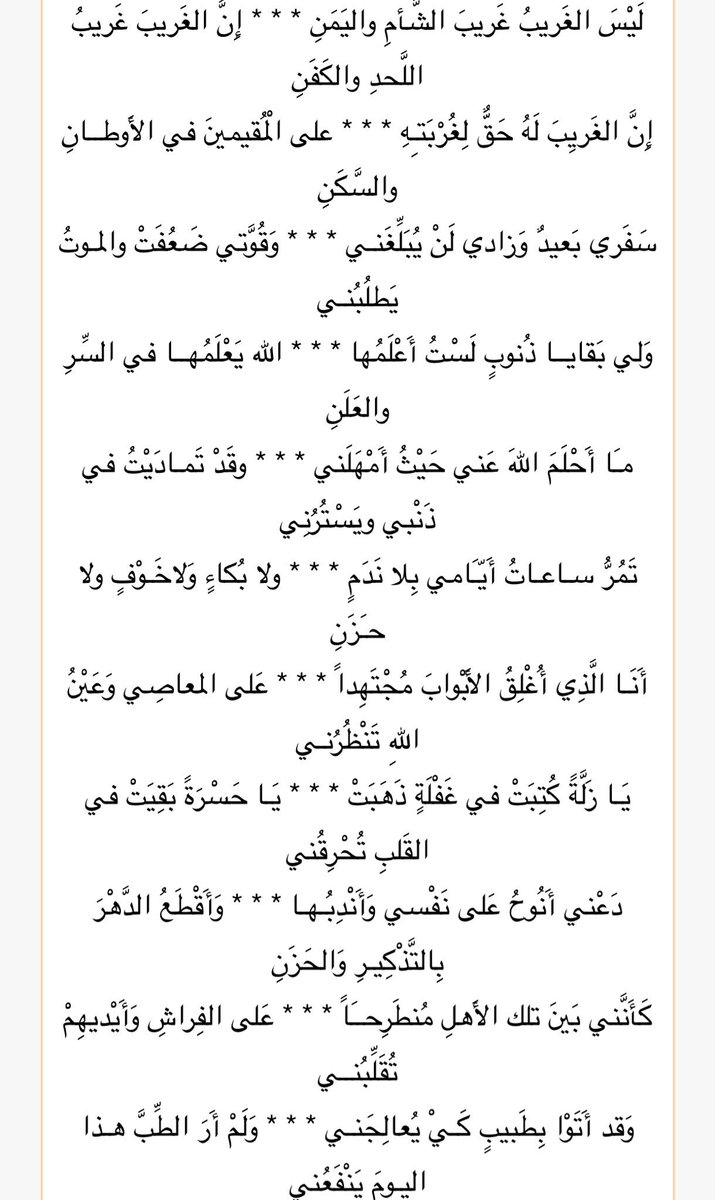 لَيْسَ الغَريبُ غَريبَ الشَّأمِ واليَمَنِ * * * إِنَّ الغَريبَ غَريبُ
اللَّحدِ والكَفَنِ
إِنَّ الغَريِبَ لَهُ حَقٌّ لِغُرْبَتـِهِ * * * على الْمُقيمينَ فـي الأَوطــانِ
والسَّكَنِ
سَفَري بَعيدٌ وَزادي لَنْ يُبَلِّغَنـي * * * وَقُوَّتـي ضَعُفَتْ والمـوتُ
يَطلُبُنـي
وَلي بَقايــا ذُنوبٍ لَسْتُ أَعْلَمُها * * * الله يَعْلَمُهــا فـي السِّرِ
والعَلَنِ
مـَا أَحْلَمَ اللهَ عَني حَيْثُ أَمْهَلَني * * * وقَدْ تَمـادَيْتُ في
ذَنْبي ويَسْتُرُنِي
تَمُرُّ سـاعـاتُ أَيّـَامي بِلا نَدَمٍ * * * ولا بُكاءٍ وَلاخَـوْفٍ ولا
حـَزَنِ
أَنَـا الَّذِي أُغْلِقُ الأَبْوابَ مُجْتَهِداً * * * عَلى المعاصِي وَعَيْنُ
اللهِ تَنْظُرُنـي
يَـا زَلَّةً كُتِبَتْ في غَفْلَةٍ ذَهَبَتْ * * * يَـا حَسْرَةً بَقِيَتْ في
القَلبِ تُحْرِقُني
دَعْني أَنُوحُ عَلى نَفْسي وَأَنْدِبُـهـا * * * وَأَقْطَعُ الدَّهْرَ
بِالتَّذْكِيـرِ وَالحَزَنِ
كَأَنَّني بَينَ تلك الأَهلِ مُنطَرِحــَاً * * * عَلى الفِراشِ وَأَيْديهِمْ
تُقَلِّبُنــي
وَقد أَتَوْا بِطَبيبٍ كَـيْ يُعالِجَنـي * * * وَلَمْ أَرَ الطِّبَّ هـذا
اليـومَ يَنْفَعُني